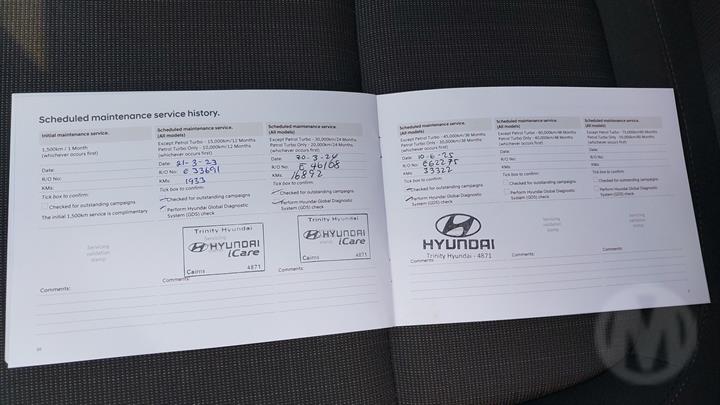 Scheduled maintenance service history.
Initial maintenance service.
1,500km / 1 Month
(whichever occurs first)
Date:
R/O No:
KMs:
Tick box to confirm:
Checked for outstanding campaigns
The initial 1,500km service is complimentary
Servicing
validation
stamp
Comments:
Scheduled maintenance service.
(All models)
Except Petrol Turbo - 15,000km/12 Months
Petrol Turbo Only - 10,000km/12 Months
(whichever occurs first)
Date: 21-3-23
R/O No: e 33691
KMs: 1933
Tick box to confirm:
Checked for outstanding campaigns
Perform Hyundai Global Diagnostic
System (GDS) check
Trinity Hyundai
Servicing
HYUNDAI
iCare
Cairns 4871
Comments:
Scheduled maintenance service.
(All models)
Except Petrol Turbo - 30,000km/24 Months
Petrol Turbo Only - 20,000km/24 Months
(whichever occurs first)
Date: 20-3-24
R/O No: E 46168
KMs: 16892
Tick box to confirm:
Checked for outstanding campaigns
Perform Hyundai Global Diagnostic
System (GDS) check
Trinity Hyundai
HYUNDAI
stamp iCare
Cairns 4871
Comments:
Scheduled maintenance service.
(All models)
Except Petrol Turbo - 45,000km/36 Months
Petrol Turbo Only - 30,000km/36 Months
(whichever occurs first)
Date: 10-6-25
R/O No: e62275
KMs: 33322
Tick box to confirm:
Checked for outstanding campaigns
Perform Hyundai Global Diagnostic
System (GDS) check
HYUNDAI
Trinity Hyundai - 4871
Comments:
Scheduled maintenance service.
(All models)
Except Petrol Turbo - 60,000km/48 Months
Petrol Turbo Only - 40,000km/48 Months
(whichever occurs first)
Date:
R/O No:
KMs:
Tick box to confirm:
Checked for outstanding campaigns
Perform Hyundai Global Diagnostic
System (GDS) check
Servicing
validation
stamp
Comments:
Scheduled maintenance service.
(All models)
Except Petrol Turbo - 75,000km/60 Months
Petrol Turbo Only - 50,000km/60 Months
(whichever occurs first)
Date:
R/O No:
KMs:
Tick box to confirm:
Checked for outstanding campaigns
Perform Hyundai Global Diagnostic
System (GDS) check
Servicing
validation
stamp
Comments:
M